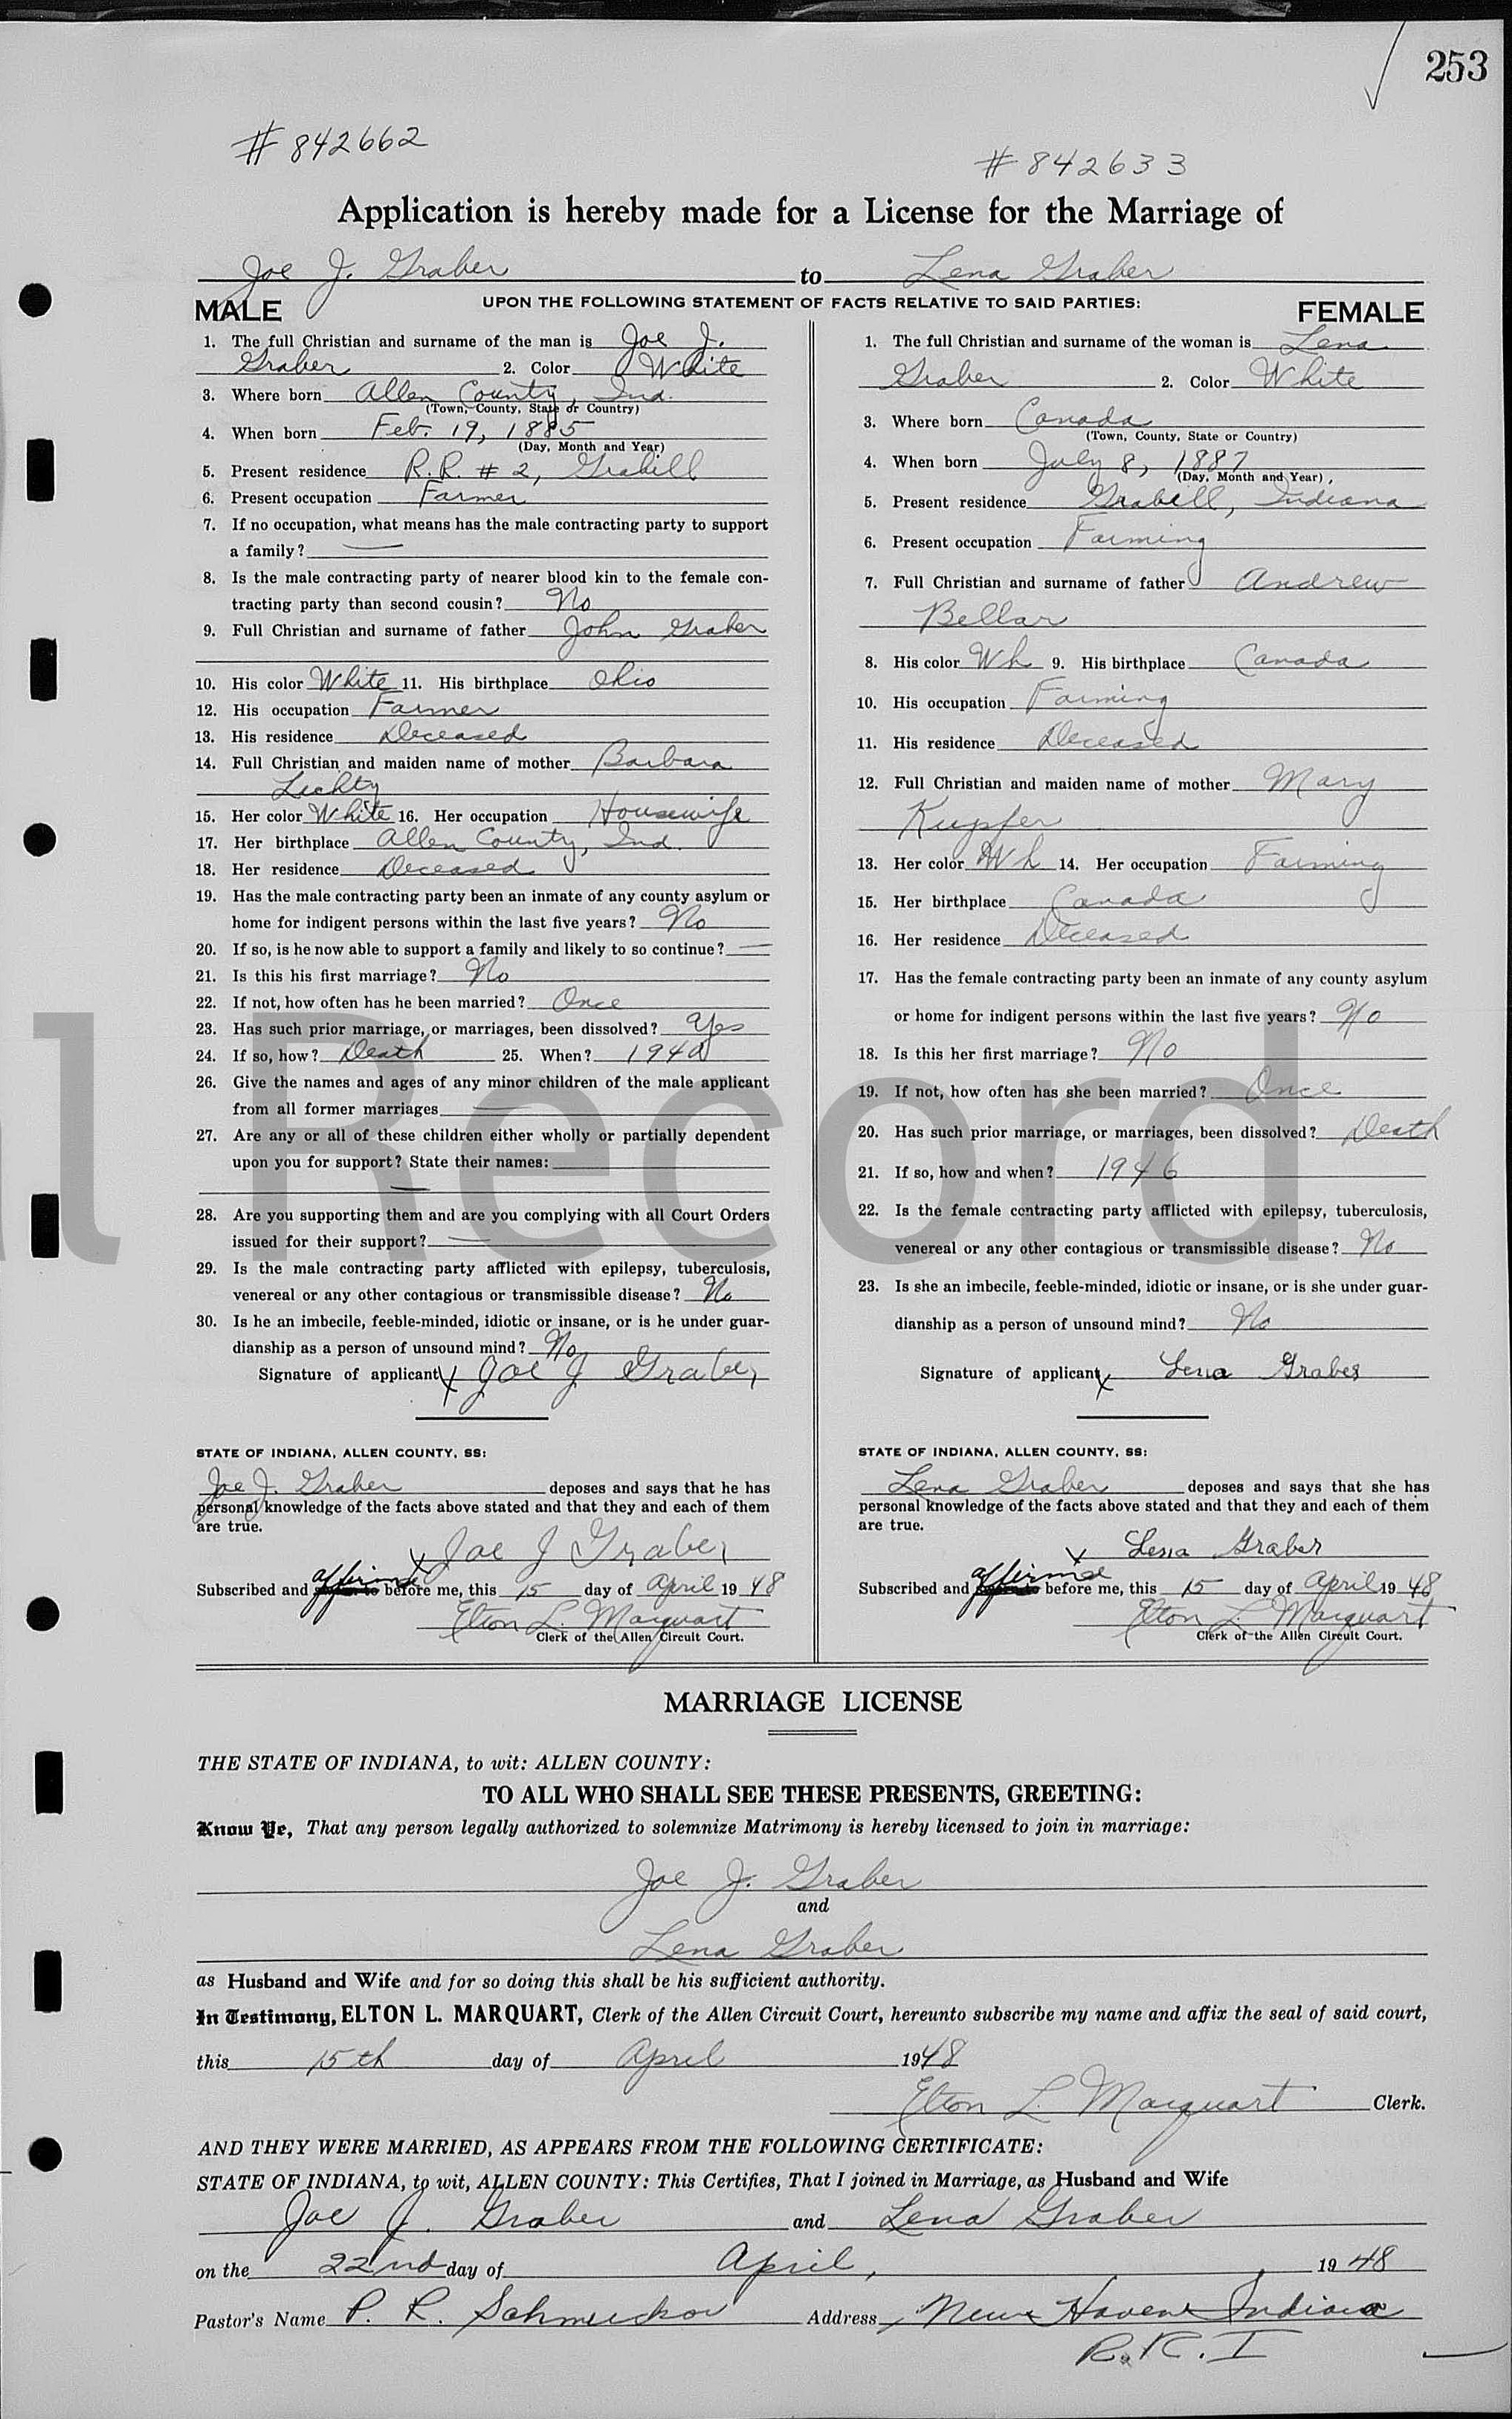 253
# 842662
# 842633
Application is hereby made for a License for the Marriage of
Joe J. Graber to Lena Graber
MALE UPON THE FOLLOWING STATEMENT OF FACTS RELATIVE TO SAID PARTIES: FEMALE
1. The full Christian and surname of the man is Joe J.
Graber 2. Color White
3. Where born Allen County, Ind.
(Town, County, State or Country)
4. When born Feb. 19, 1885
(Day, Month and Year)
5. Present residence R.R. # 2, Grabill
6. Present occupation Farmer
7. If no occupation, what means has the male contracting party to support
a family? —
8. Is the male contracting party of nearer blood kin to the female con-
tracting party than second cousin? No
9. Full Christian and surname of father John Graber
10. His color White 11. His birthplace Ohio
12. His occupation Farmer
13. His residence Deceased
14. Full Christian and maiden name of mother Barbara
Lichty
15. Her color White 16. Her occupation Housewife
17. Her birthplace Allen County, Ind.
18. Her residence Deceased
19. Has the male contracting party been an inmate of any county asylum or
home for indigent persons within the last five years? No
20. If so, is he now able to support a family and likely to so continue? —
21. Is this his first marriage? No
22. If not, how often has he been married? Once
23. Has such prior marriage, or marriages, been dissolved? Yes
24. If so, how? Death 25. When?
26. Give the names and ages of any minor children of the male applicant
from all former marriages —
27. Are any or all of these children either wholly or partially dependent
upon you for support? State their names:
—
28. Are you supporting them and are you complying with all Court Orders
issued for their support? —
29. Is the male contracting party afflicted with epilepsy, tuberculosis,
venereal or any other contagious or transmissible disease? No
30. Is he an imbecile, feeble-minded, idiotic or insane, or is he under guar-
dianship as a person of unsound mind? No
Signature of applicant x Joe J Graber
STATE OF INDIANA, ALLEN COUNTY, SS:
Joe J. Graber deposes and says that he has
personal knowledge of the facts above stated and that they and each of them
are true.
x Joe J Graber
Subscribed and affirmed before me, this 15 day of April 1948
Elton L. Marquart
Clerk of the Allen Circuit Court.
1. The full Christian and surname of the woman is Lena
Graber 2. Color White
3. Where born Canada
(Town, County, State or Country)
4. When born July 8, 1887
(Day, Month and Year)
5. Present residence Grabill, Indiana
6. Present occupation Farming
7. Full Christian and surname of father Andrew
Bellar
8. His color Wh 9. His birthplace Canada
10. His occupation Farming
11. His residence Deceased
12. Full Christian and maiden name of mother Mary
Kupfer
13. Her color Wh 14. Her occupation Farming
15. Her birthplace Canada
16. Her residence Deceased
17. Has the female contracting party been an inmate of any county asylum
or home for indigent persons within the last five years? No
18. Is this her first marriage? No
19. If not, how often has she been married? Once
20. Has such prior marriage, or marriages, been dissolved? Death
21. If so, how and when? 1946
22. Is the female contracting party afflicted with epilepsy, tuberculosis,
venereal or any other contagious or transmissible disease? No
23. Is she an imbecile, feeble-minded, idiotic or insane, or is she under guar-
dianship as a person of unsound mind? No
Signature of applicant x Lena Graber
STATE OF INDIANA, ALLEN COUNTY, SS:
Lena Graber deposes and says that she has
personal knowledge of the facts above stated and that they and each of them
are true.
x Lena Graber
Subscribed and affirmed before me, this 15 day of April 1948
Elton L. Marquart
Clerk of the Allen Circuit Court.
l Record
MARRIAGE LICENSE
THE STATE OF INDIANA, to wit: ALLEN COUNTY:
TO ALL WHO SHALL SEE THESE PRESENTS, GREETING:
Know Ye, That any person legally authorized to solemnize Matrimony is hereby licensed to join in marriage:
Joe J. Graber
and
Lena Graber
as Husband and Wife and for so doing this shall be his sufficient authority.
In Testimony, ELTON L. MARQUART, Clerk of the Allen Circuit Court, hereunto subscribe my name and affix the seal of said court,
this 15th day of April 1948
Elton L. Marquart Clerk.
AND THEY WERE MARRIED, AS APPEARS FROM THE FOLLOWING CERTIFICATE:
STATE OF INDIANA, to wit, ALLEN COUNTY: This Certifies, That I joined in Marriage, as Husband and Wife
Joe J. Graber and Lena Graber
on the 22nd day of April, 1948
Pastor's Name P. R. Address New Haven Indiana
R.R. I